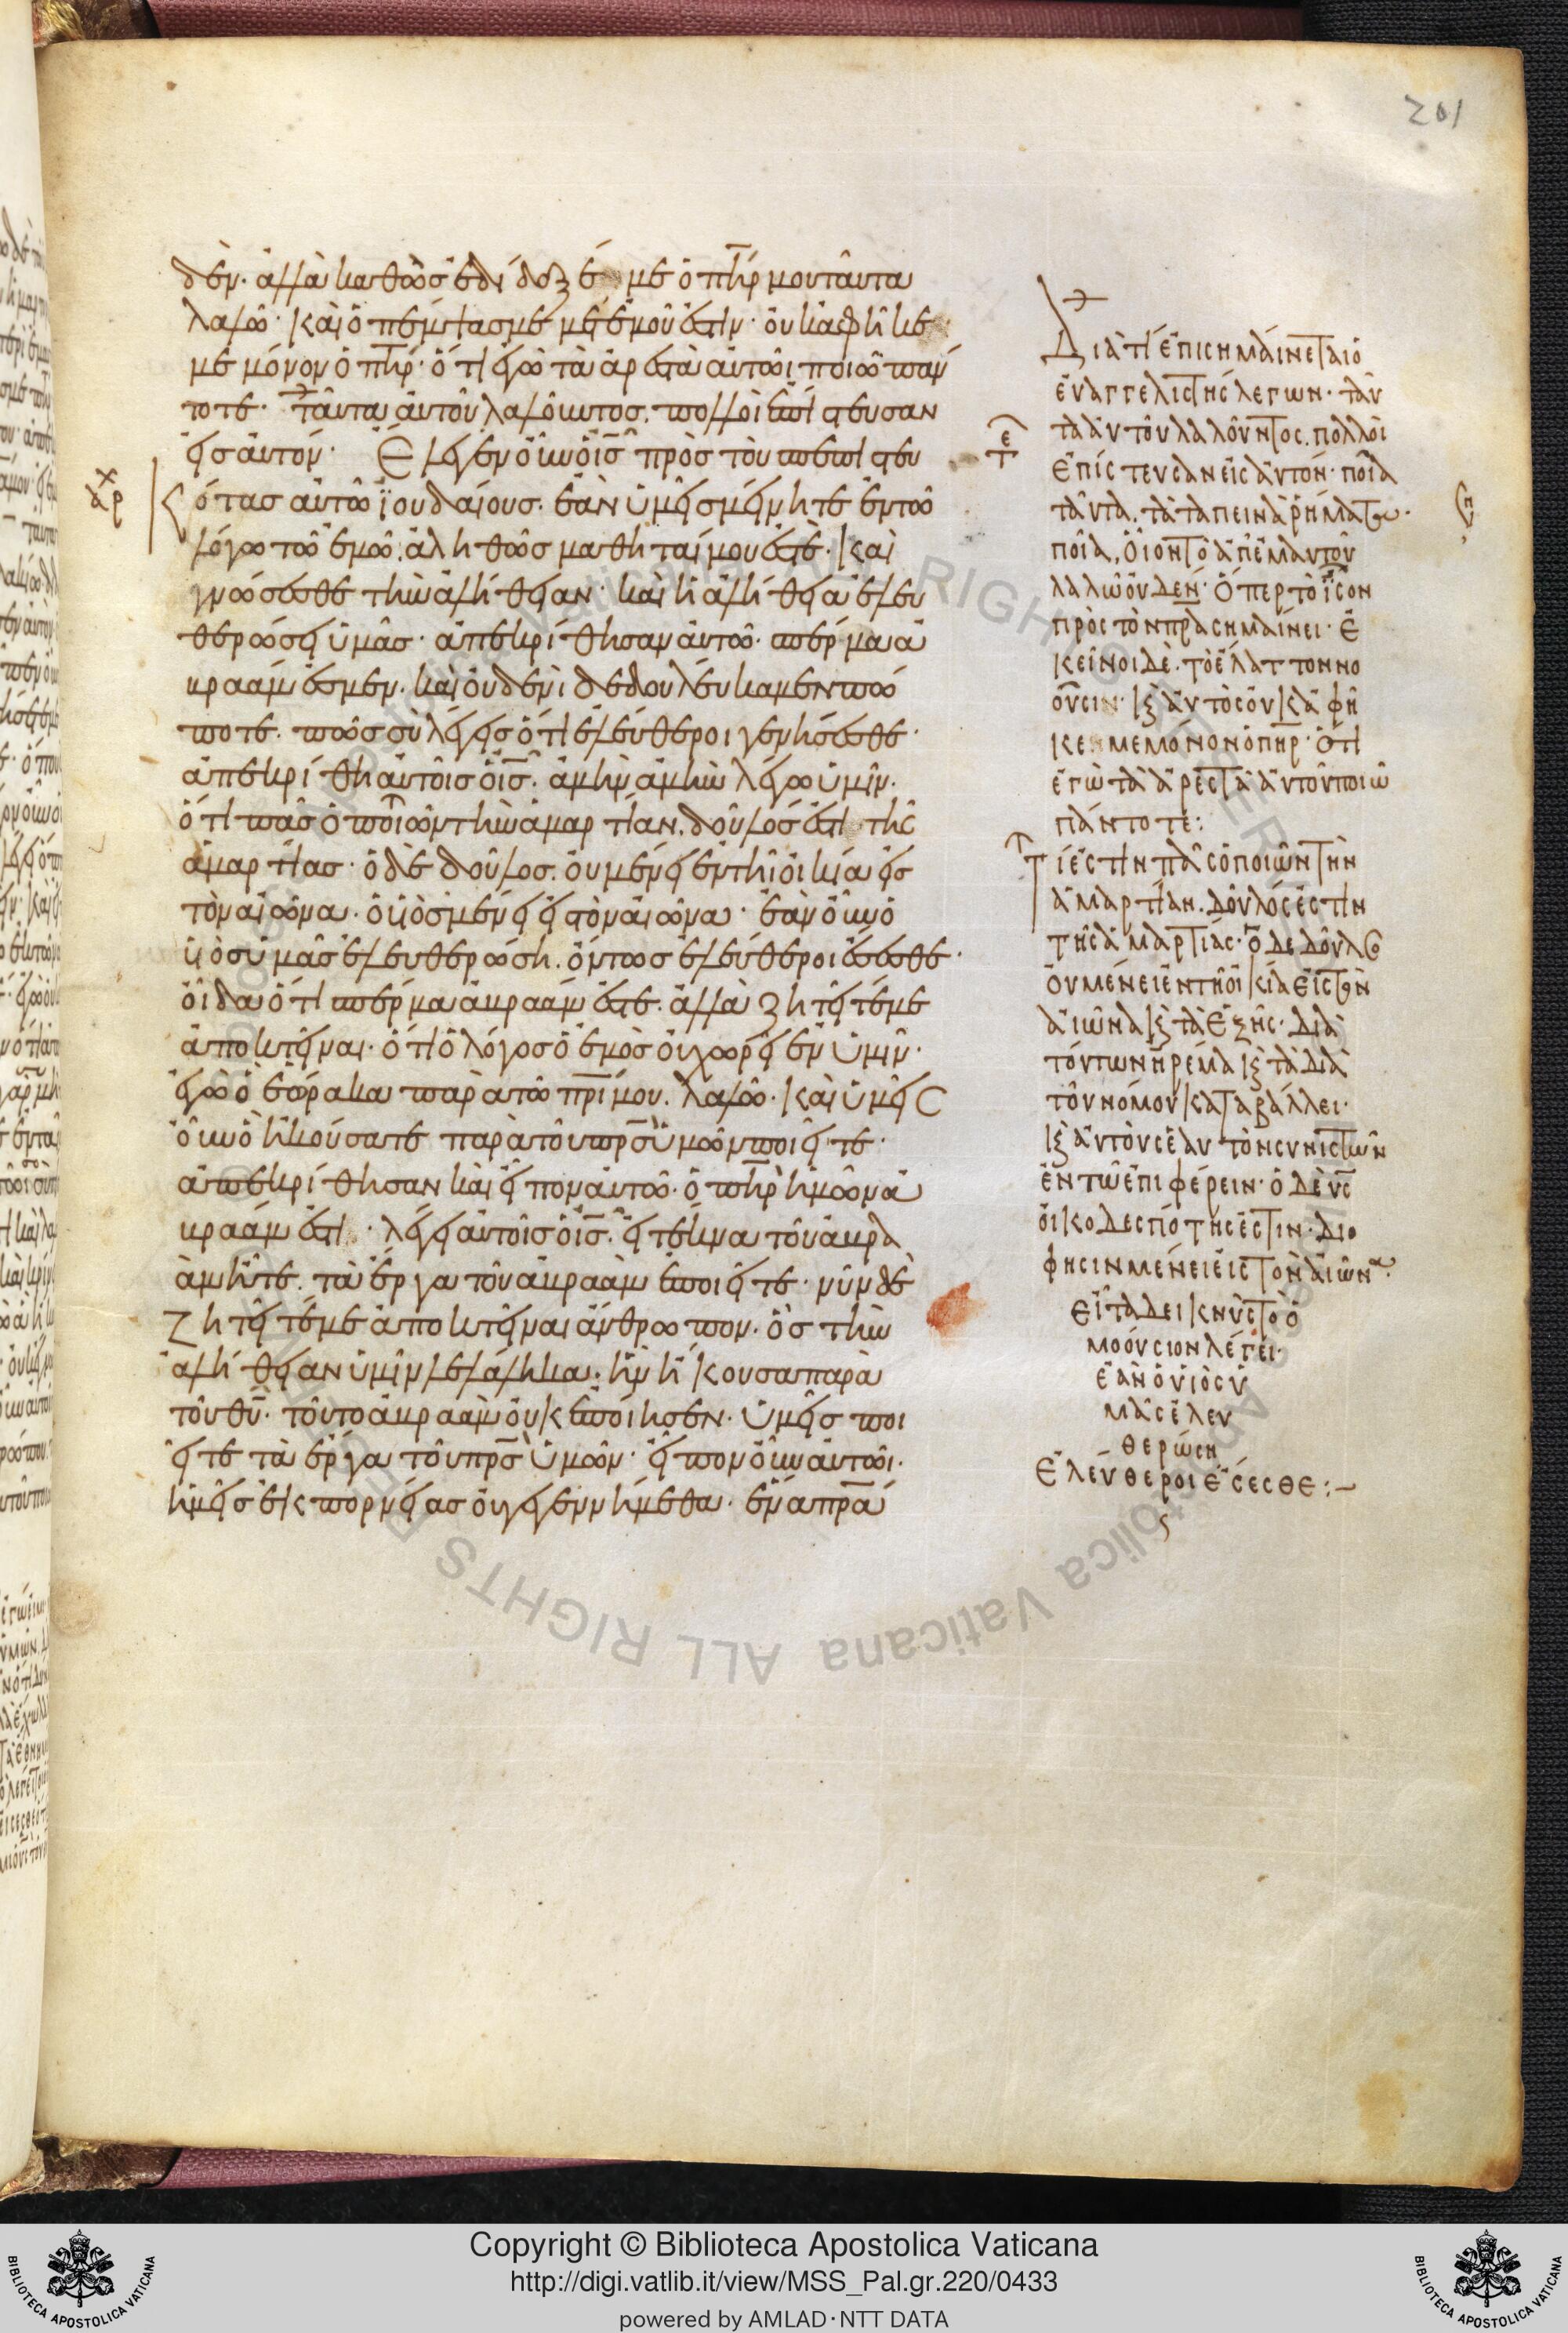 201
δέν· ἀλλὰ καθὼς ἐδίδαξέ με ὁ πη̅ρ μου ταῦτα
λαλῶ· καὶ ὁ πέμψας με μετ' ἐμοῦ ἐστιν· οὐκ ἀφῆκε
με μόνον ὁ πη̅ρ· ὅτι ἐγὼ τὰ ἀρεστὰ αὐτῶι ποιῶ πάν
τοτε· ταῦτα αὐτοῦ λαλοῦντος. πολλοὶ ἐπίστευσαν
εἰς αὐτόν· Ἔλεγεν οὖν ὁ ις̅ πρὸς τοὺς πεπιστευ
κότας αὐτῶ ϊουδαίους. ἐὰν ὑμεῖς μείνητε ἐν τῶ
λόγω τῶ ἐμῶ. ἀληθῶς μαθηταί μου ἐστέ· καὶ
γνώσεσθε τὴν ἀλήθειαν· καὶ ἡ ἀλήθεια ἐλευ
θερώσει ὑμᾶς· ἀπεκρίθησαν αὐτῶ· σπέρμα ἀ
βραάμ ἐσμεν. καὶ οὐδενὶ δεδουλεύκαμεν πώ
ποτε. πῶς σὺ λέγεις ὅτι ἐλεύθεροι γενήσεσθε·
ἀπεκρίθη αὐτοῖς ὁ ις̅. ἀμὴν ἀμὴν λέγω ὑμῖν.
ὅτι πᾶς ὁ ποιῶν τὴν ἁμαρτίαν. δοῦλός ἐστι τῆς
ἁμαρτίας· ὁ δὲ δοῦλος. οὐ μένει ἐν τῆ οἰκία εἰς
τὸν αἰῶνα. ὁ ὑιὸς μένει εἰς τὸν αἰῶνα· ἐὰν οὖν ὁ
ὑιὸς ὑμᾶς ἐλευθερώση. ὄντως ἐλεύθεροι ἔσεσθε·
οἶδα ὅτι σπέρμα ἀβραάμ ἐστε. ἀλλὰ ζητεῖτέ με
ἀποκτεῖναι. ὅτι ὁ λόγος ὁ ἐμὸς οὐ χωρεῖ ἐν ὑμῖν·
ἐγὼ ὃ ἑώρακα παρὰ τῶ πρι̅ μου. λαλῶ. καὶ ὑμεῖς
οὖν ὃ ἠκούσατε παρὰ τοῦ πρς̅ ὑμῶν ποιεῖτε·
ἀπεκρίθησαν καὶ εἶπον αὐτῶ· ὁ πη̅ρ ἡμῶν ἀ
βραάμ ἐστι· λέγει αὐτοῖς ὁ ις̅. εἰ τέκνα τοῦ ἀβρα
ὰμ ἦτε. τὰ ἔργα τοῦ ἀβραὰμ ἐποιεῖτε· νῦν δὲ
ζητεῖτέ με ἀποκτεῖναι ἄνθρωπον. ὃς τὴν
ἀλήθειαν ὑμῖν λελάληκα. ἣν ἤκουσα παρὰ
τοῦ θυ̅· τοῦτο ἀβραὰμ οὐκ ἐποίησεν. ὑμεῖς ποι
εῖτε τὰ ἔργα τοῦ πρς̅ ὑμῶν· εἶπον οὖν αὐτῶι.
ἡμεῖς ἐκ πορνείας οὐ γεγεννήμεθα· ἕνα πρα̅
Διατί ἐπισημαίνεται ὁ
ἐυαγγελιστὴς λέγων· ταῦ
τα αὐτοῦ λαλοῦντος. πολλοὶ
ἐπίστευσαν εἰς αὐτόν· ποῖα
ταῦτα. τὰ ταπεινὰ ῥήματα.
ποῖα. οἷον τὸ ἀπ' ἐμαυτοῦ
λαλῶ οὐδέν· ὅπερ τὸ ἴσον
πρὸς τὸν πρα̅ σημαίνει· ἐ
κεῖνοι δὲ. τὸ ἔλαττον νο
οῦσιν· κ αὐτὸς οὐκ ἀφῆ
κε με μόνον ὁ πηρ̅· ὅτι
ἐγὼ τὰ ἀρεστὰ αὐτοῦ ποιῶ
πάντοτε:
Τί ἐστιν πᾶς ὁ ποιῶν τὴν
ἁμαρτίαν. δοῦλός ἐστιν
τῆς ἁμαρτίας· ὁ δὲ δοῦλος
οὐ μένει ἐν τῆ οἰκία εἰς τὸν
αἰῶνα κ τὰ ἑξῆς· διὰ
τούτων ἠρέμα κ τὰ διὰ
τοῦ νόμου καταβάλλει·
κ αὐτὸυς ἑαυτὸν συνιστῶν
ἐν τῶ ἐπιφέρειν· ὁ δὲ υς̅
οἰκοδεσπότης ἐστιν· διό
φησιν μένει εἰς τὸν αἰῶνα·
εἶτα δεικνὺς τὸ ὁ
μοούσιον λέγει·
ἐὰν ὁ υἱὸς ὑ
μᾶς ἐλευ
θερώση
ἐλεύθεροι ἔσεσθε:~
Copyright © Biblioteca Apostolica Vaticana
http://digi.vatlib.it/view/MSS_Pal.gr.220/0433
powered by AMLAD·NTT DATA